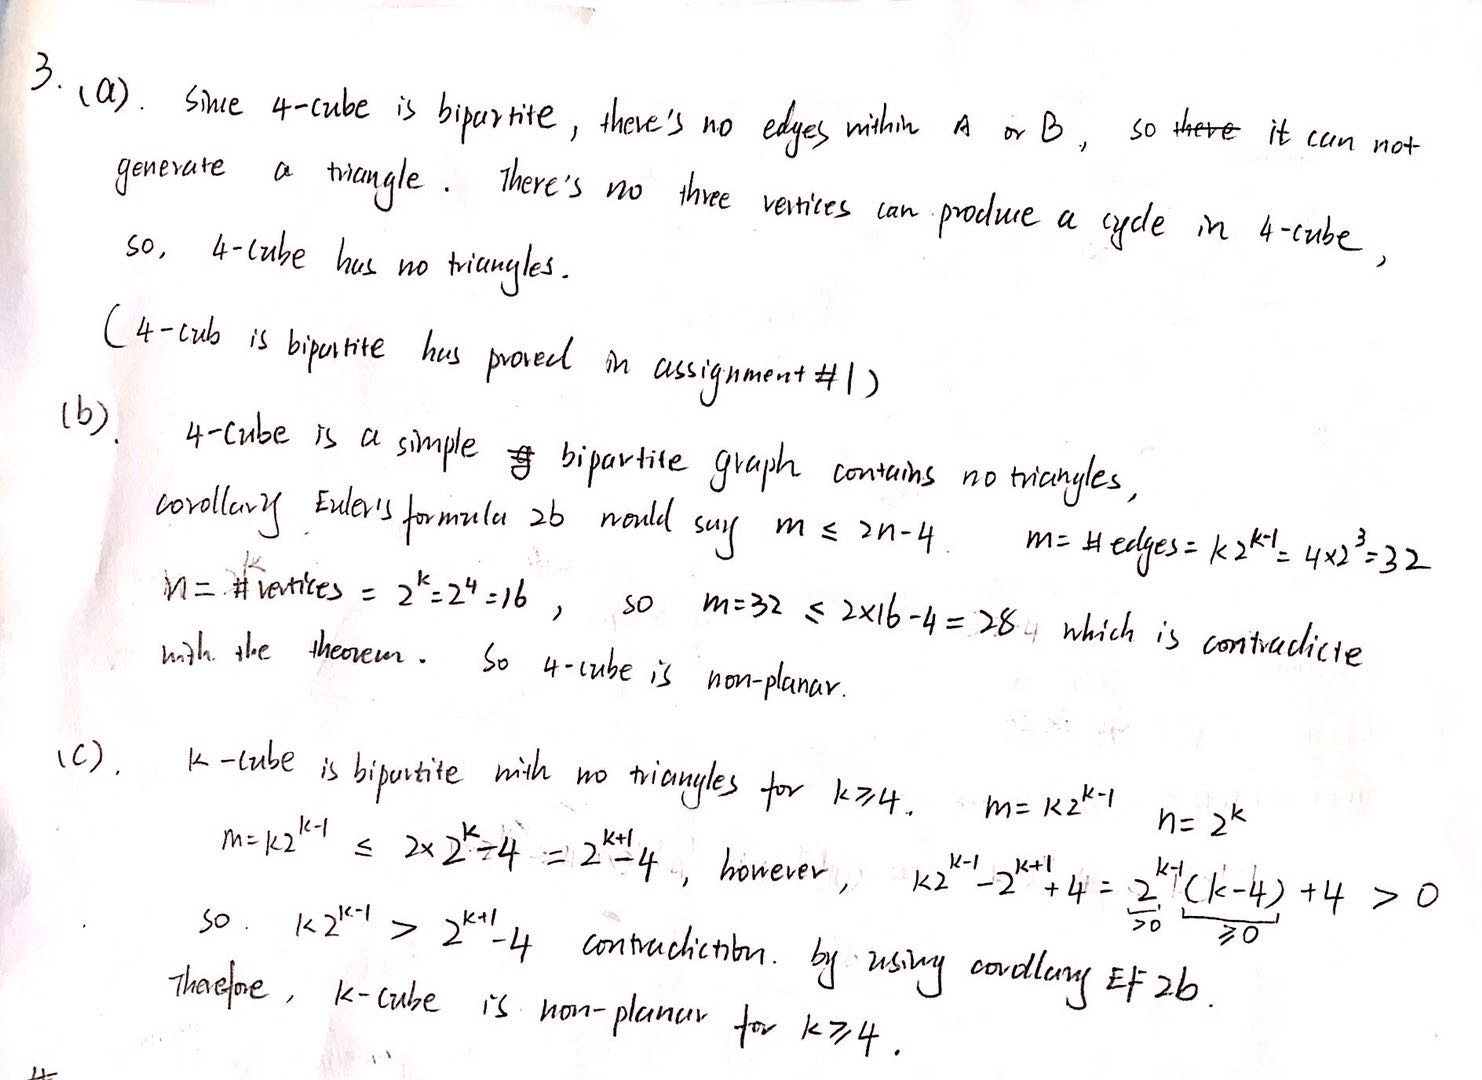 3. (a). Since 4-cube is bipartite, there's no edges within A or B, so there it can not
generate a triangle. There's no three vertices can produce a cycle in 4-cube,
so, 4-cube has no triangles.
(4-cub is bipartite has proved in assignment #1)
(b). 4-cube is a simple bipartite graph contains no triangles,
corollary Euler's formula 2b would say m ≤ 2n-4. m = # edges = k2^{k-1} = 4×2^3 = 32
n = # vertices = 2^k = 2^4 = 16, so m = 32 ≤ 2×16-4 = 28, which is contradicte
with the theorem. So 4-cube is non-planar.
(c). k-cube is bipartite with no triangles for k ≥ 4. m = k2^{k-1} n = 2^k
m = k2^{k-1} ≤ 2×2^k-4 = 2^{k+1}-4, however, k2^{k-1}-2^{k+1}+4 = 2^{k-1}(k-4)+4 > 0
>0 ≥0
so. k2^{k-1} > 2^{k+1}-4 contradiction. by using corollary EF 2b.
Therefore, k-cube is non-planar for k ≥ 4.